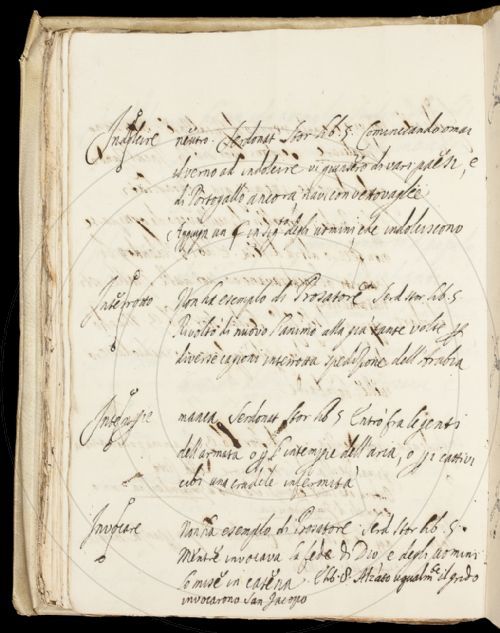 Indolcire neutro. Serdonat. Stor. lib. 5. Cominciando omai
il verno ad indolcire vi giunsero di vari paesi, e
di Portogallo ancora navi con vettovaglie
degli uomini, che indolciscono
Interrotto Non ha esempio di Prosatore. Serd. stor. lib. 5
Rivoltò di nuovo l'animo alla già tante volte
diverse cagioni interrotta spedizione dell'Arabia
Intemperie manca. Serdonat. Stor. lib. 5 Entrò fra le genti
dell'armata o l'intemperie dell'aria, o cattivi
cibi una crudele infermità
Invocare Non ha esempio di Prosatore. Serd. stor. lib. 5.
Mentre invocava la fede di Dio, e degli uomini
lo mise in catena. E lib. 8. Alzato ugualmte il grido
invocarono San Jacopo